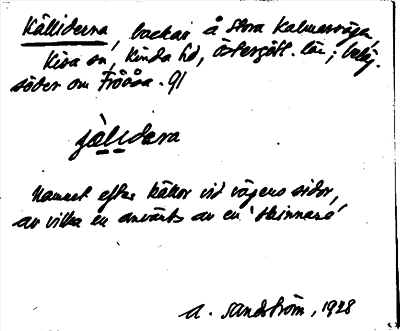 Källiderna, backar å Stora Kalmarvägen,
Kisa sn, Kinda hd, Östergötl. län; beläg.
söder om Fröåsa. 91
jälidara
Namnet efter källor vid vägens sidor,
av vilka en använts av en 'skinnare'
A. Sandström, 1928